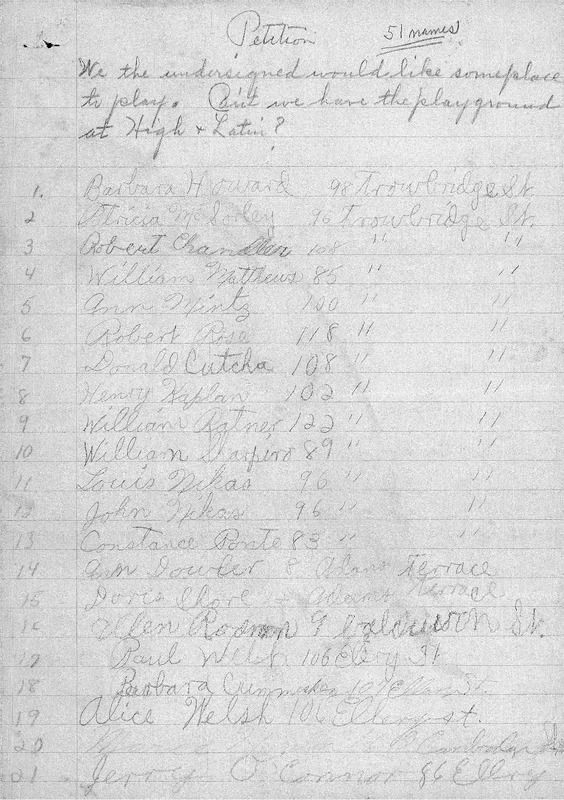 Petition 51 names
We the undersigned would like someplace
to play. Can't we have the playground
at High & Latin?
1. Barbara Howard 98 Trowbridge St.
2 Patricia McSorley 96 Trowbridge St.
3 Robert Chandler 108 " "
4 William Matthews 85 " "
5 Ann Mintz 100 " "
6 Robert Rosa 118 " "
7 Donald Cutcha 108 " "
8 Henry Kaplan 102 " "
9 William Ratner 122 " "
10 William Shapiro 89 " "
11 Louis Nikas 96 " "
12 John Nikas 96 " "
13 Constance Ponte 83 " "
14 Ann Dowler 8 Adams Terrace
15 Doris Adams Terrace
16 Allen 9 St.
17 Paul Welsh 106 Ellery St
18 Barbara 107 Ellery St.
19 Alice Welsh 106 Ellery st.
20 Cambridge
21 Jerry O'Connor 86 Ellery